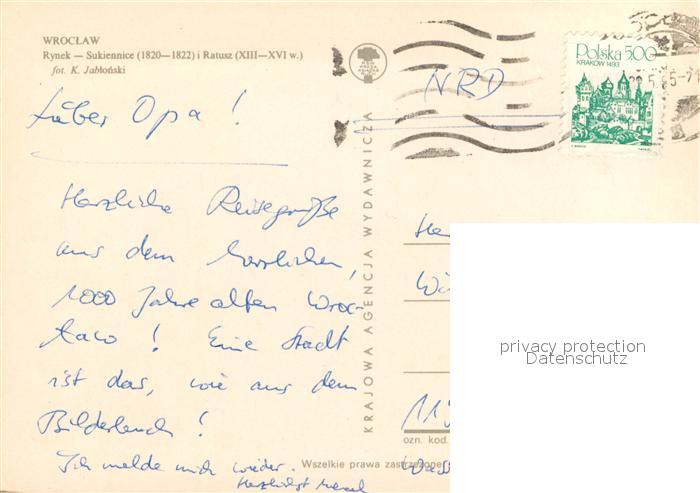 WROCŁAW
Rynek — Sukiennice (1820—1822) i Ratusz (XIII—XVI w.)
fot. K. Jabłoński
Polska 5.00
KRAKÓW 1493
NRD
Lieber Opa !
Herzliche Reisegrüße
aus dem herrlichen,
1000 Jahre alten Wroc-
ław ! Eine Stadt
ist das, wie aus dem
Bilderbuch !
Ich melde mich wieder.
Herzlichst
KRAJOWA AGENCJA WYDAWNICZA
privacy protection
Datenschutz
ozn. kod.
Wszelkie prawa zastrzeżone